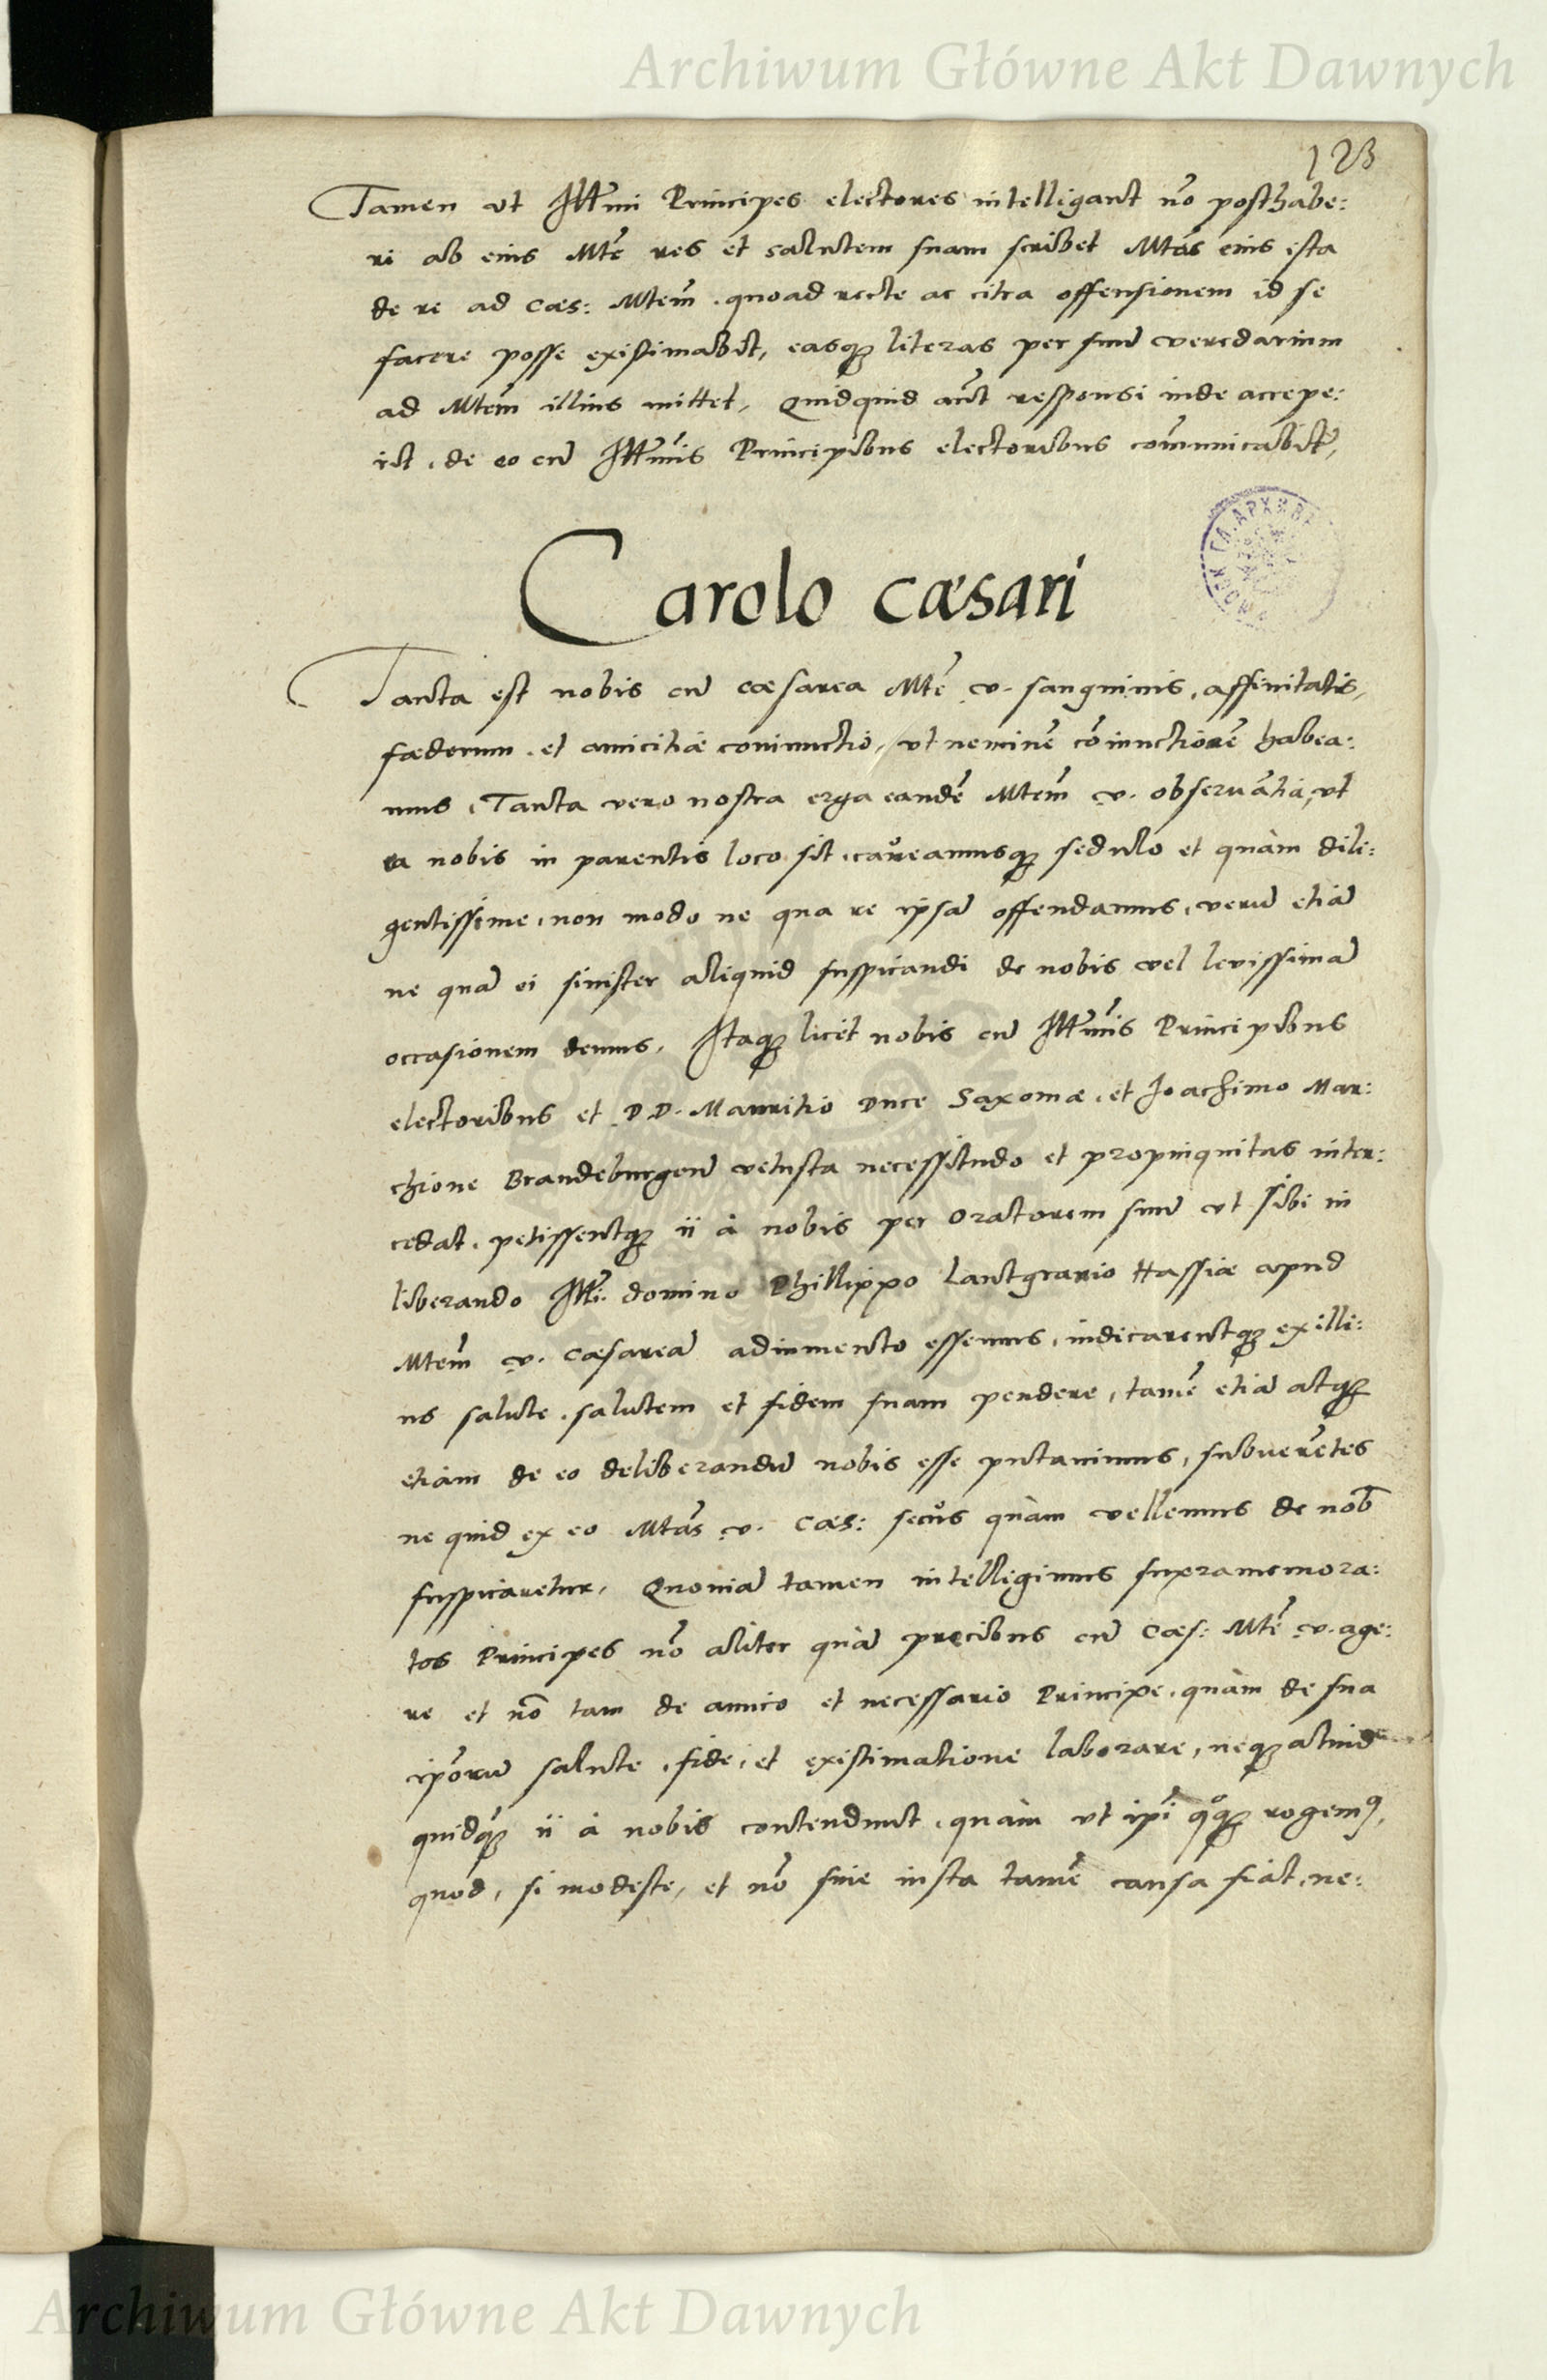 Archiwum Główne Akt Dawnych
123
Tamen vt Illmi Principes electores intelligant nō posthabe:
ri ab eius Mte res et salutem suam scribet Mtas eius ista
de re ad Cæs: Mtem. quoad recte ac citra offensionem id se
facere posse existimabit, easq3 literas per suū veredarium
ad Mtem illius mittet, Quidquid aūt responsi inde accepe:
rit, de eo cū Illmis Principibus electoribus cōmunicabit,
Carolo Cæsari
Tanta est nobis cū cæsarea Mte v. sanguinis, affinitatis,
fœderum, et amicitiæ coniunctio, vt neminē cōiunctiorē habea:
mus, Tanta vero nostra erga eandē Mtem v. obseruātia, vt
ea nobis in parentis loco sit, caueamusq3 sedulo et quàm dili:
gentissime, non modo ne qua re ipsā offendamus, verū etiā
ne quā ei sinister aliquid suspicandi de nobis vel leuissimā
occasionem demus, Itaq3 licet nobis cū Illmis Principibus
electoribus et D.D. Mauritio Duce Saxoniæ, et Joachimo Mar:
chione Brandeburgeñ vetusta necessitudo et propinquitas inter:
cedat, petissentq3 ii à nobis per Oratorem suū vt sibi in
liberando Illri domino Phillippo Lantgrauio Hassiæ apud
Mtem v. Cæsareā adiumento essemus, indicarentq3 ex illi:
us salute, salutem et fidem suam pendere, tamē etiā atq3
etiàm de eo deliberandū nobis esse putauimus, subuerētes
ne quid ex eo Mtas v. Cæs: secùs quàm vellemus de nob
suspicaretur, Quoniā tamen intelligimus supramemora:
tos Principes nō aliter quā precibus cū Cæs: Mte v. age:
re et nō tam de amico et necessario Principe, quàm de sua
ipōrū salute, fide, et existimatione laborare, neq3 aliud
quidq3 ii à nobis contendunt, quàm vt ipi qoq3 rogemus,
quod, si modeste, et nō sine iusta tamē causa fiat, ne:
Archiwum Główne Akt Dawnych